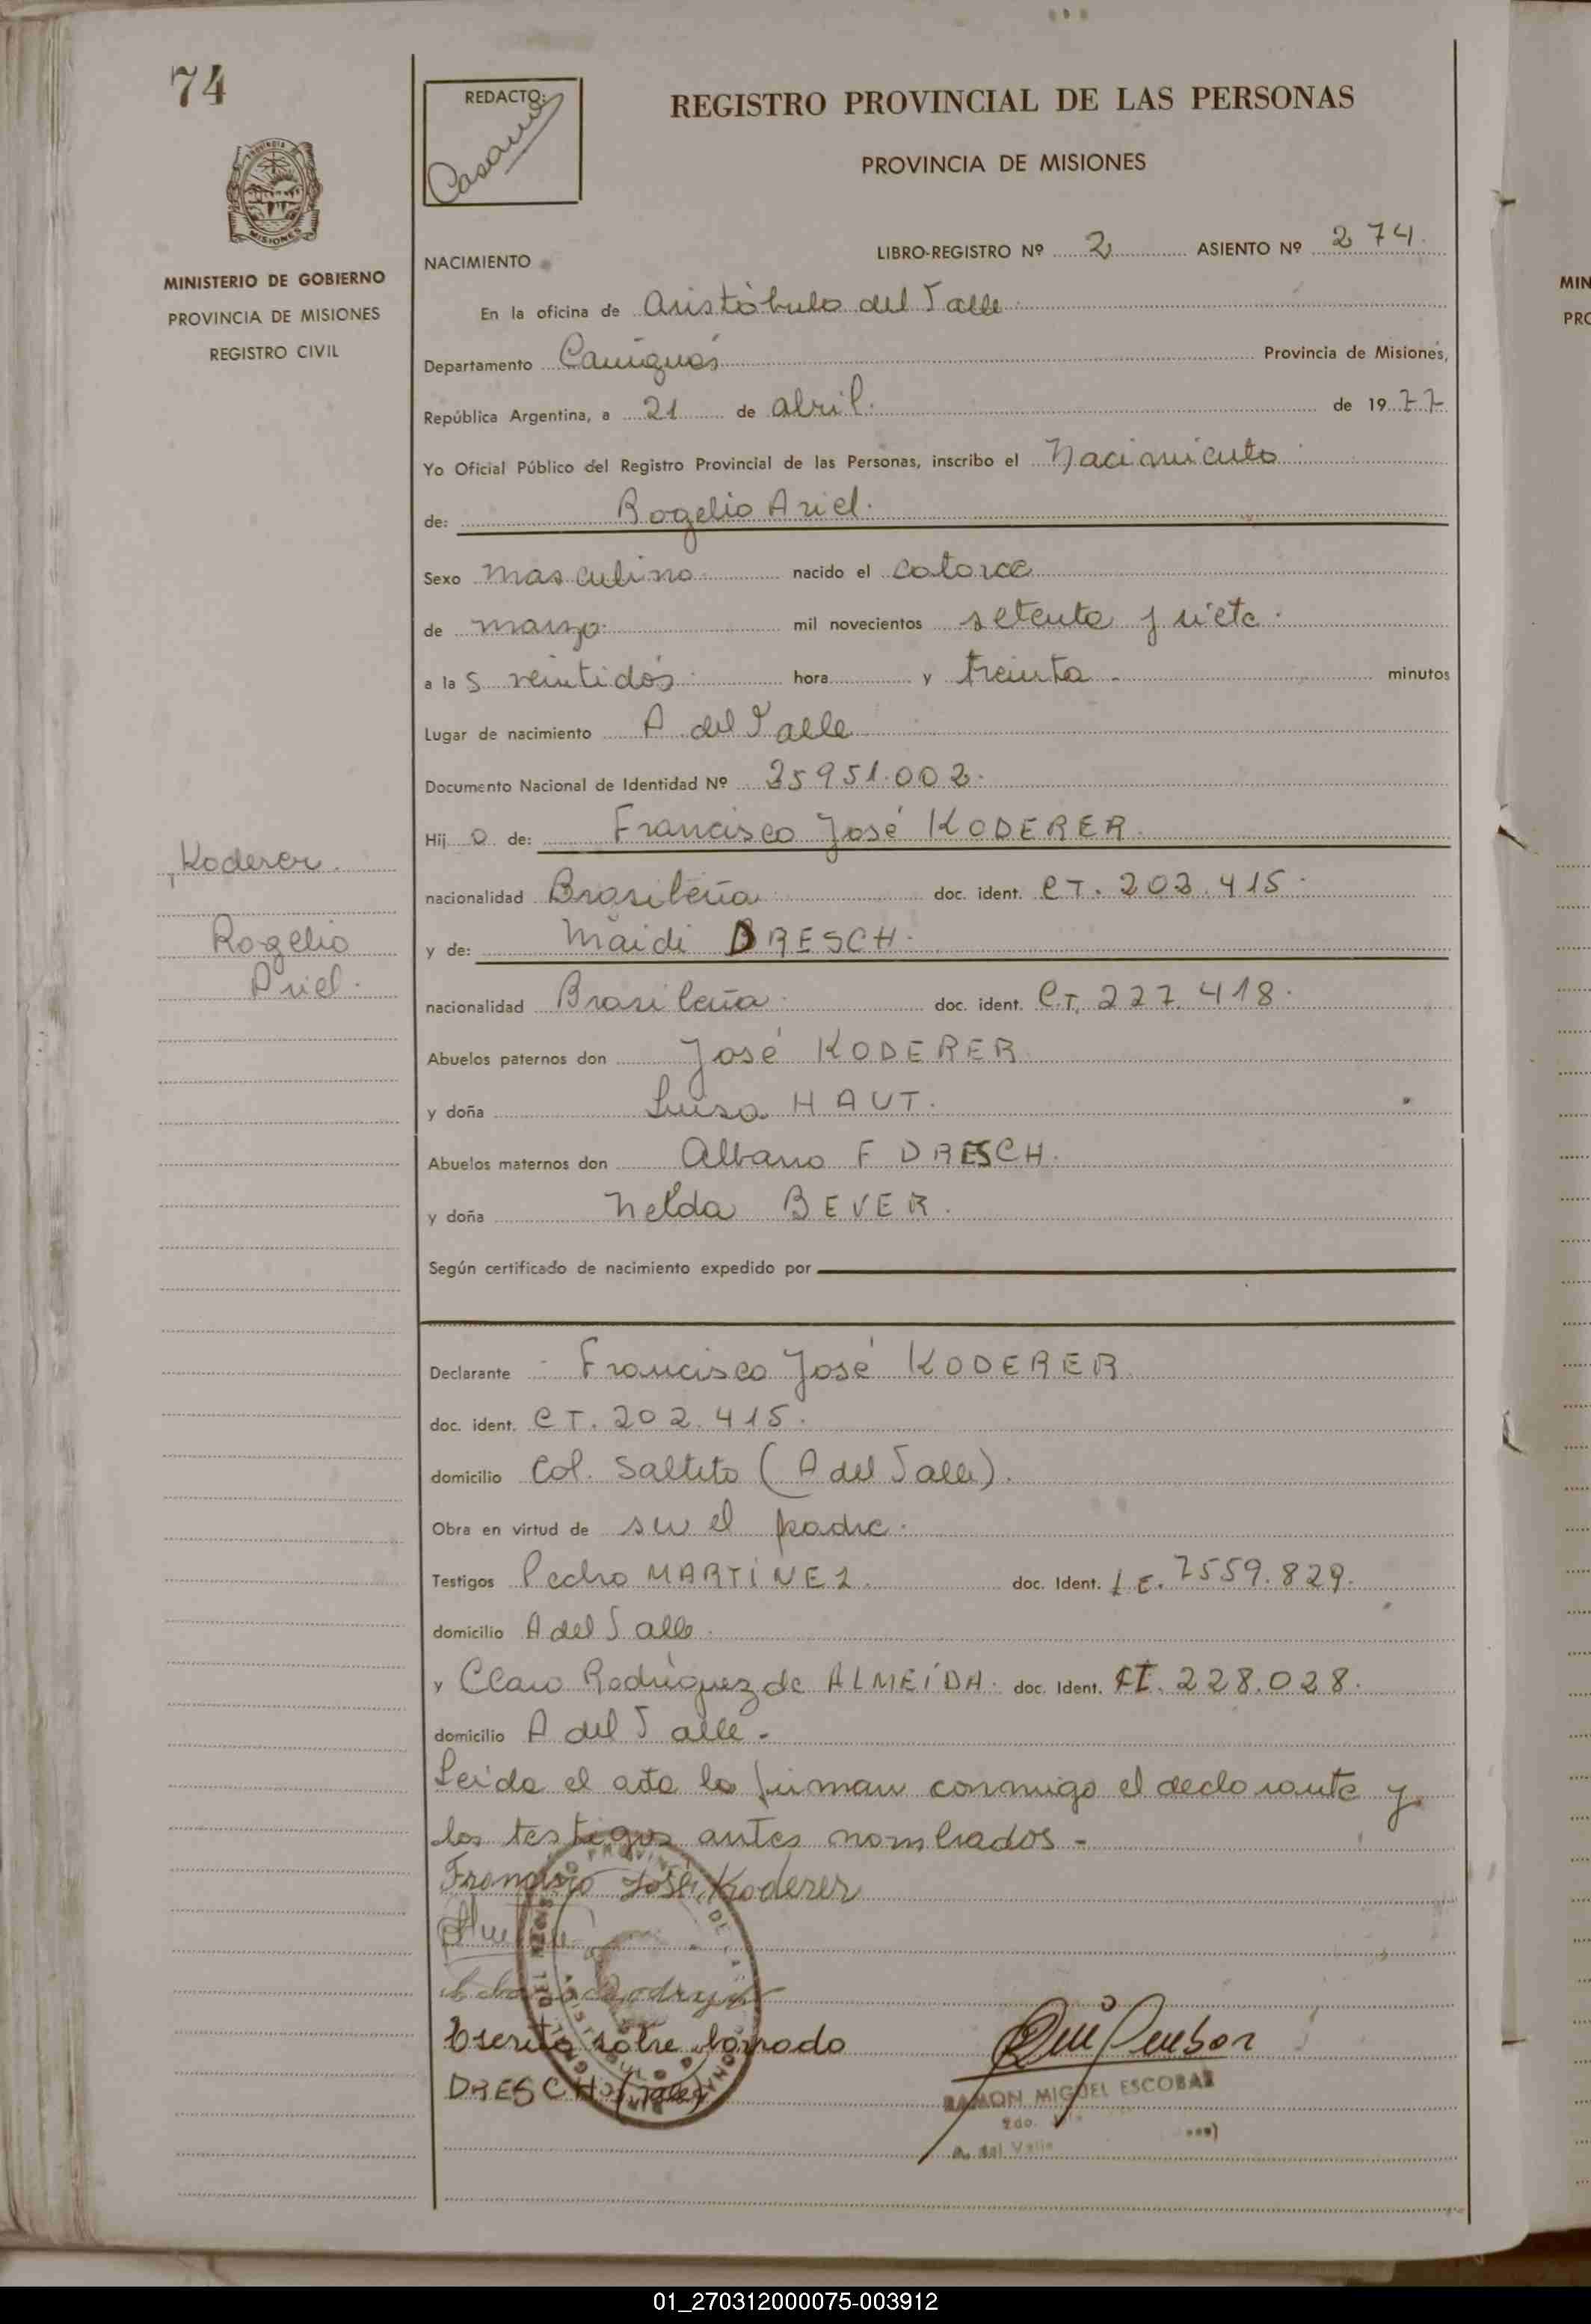 74
REDACTO:
Casano
REGISTRO PROVINCIAL DE LAS PERSONAS
PROVINCIA DE MISIONES
MISIONES
MINISTERIO DE GOBIERNO
PROVINCIA DE MISIONES
REGISTRO CIVIL
LIBRO-REGISTRO Nº 2 ASIENTO Nº 274.
NACIMIENTO
En la oficina de Aristóbulo del Valle.
Departamento Cainguás Provincia de Misiones,
República Argentina, a 21 de abril. de 1977
Yo Oficial Público del Registro Provincial de las Personas, inscribo el Nacimiento
de: Rogelio Ariel.
Sexo masculino nacido el catorce
de marzo mil novecientos setenta y siete.
a la s veintidós hora y treinta minutos
Lugar de nacimiento A. del Valle
Documento Nacional de Identidad Nº 25951.002.
Hij o de: Francisco José KODERER
nacionalidad Brasileña doc. ident. CT. 202.415.
y de: Maidi DRESCH.
nacionalidad Brasileña doc. ident. C.T. 227.418.
Abuelos paternos don José KODERER
y doña Luisa HAUT.
Abuelos maternos don Albano F DRESCH.
y doña Nelda BEVER.
Según certificado de nacimiento expedido por
Koderer.
Rogelio
Ariel.
Declarante Francisco José KODERER
doc. ident. CT. 202.415.
domicilio Col. Saltito (A del Valle).
Obra en virtud de ser el padre.
Testigos Pedro MARTÍNEZ doc. Ident. L.E. 7559.829.
domicilio A del Valle.
y Claro Rodríguez de ALMEÍDA. doc. Ident. CI. 228.028.
domicilio A del Valle.
Leída el acta la firman conmigo el declarante y
los testigos antes nombrados -
Francisco José Koderer
Escrito sobre borrado
DRESCH (Vale)
RAMON MIGUEL ESCOBAR
A. del Valle
01_270312000075-003912